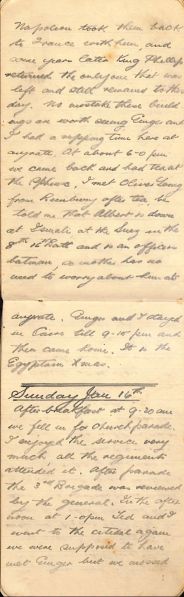 Napoleon took them back
to France with him, and
some years latter King Phillip
returned the only one that was
left and still remains to this
day. No mistake these build
ings are worth seeing Ginger and
I had a ripping time here at
anyrate. At about 6-0 pm
we came back and had tea at
the I met Oliver Long
from Bunbury after tea, he
told me that Albert is down
at the Suez in the
8th 16 Batt and is an officers
batman, so mother has no
need to worry about him at
anyrate. Ginger and I stayed
in Cairo till 9.15 pm and
then came home. It is the
Egyptain Xmas.
Sunday Jan 16th
After breakfast at 9-30 am
we fell in for Church parade.
I enjoyed the service very
much all the regiments
attended it. After parade
the 3rd Brigade was reviewed
by the general. In the after
noon at 1-0 pm Ted and I
went to the citidel again
we were supposed to have
met Ginger but we missed